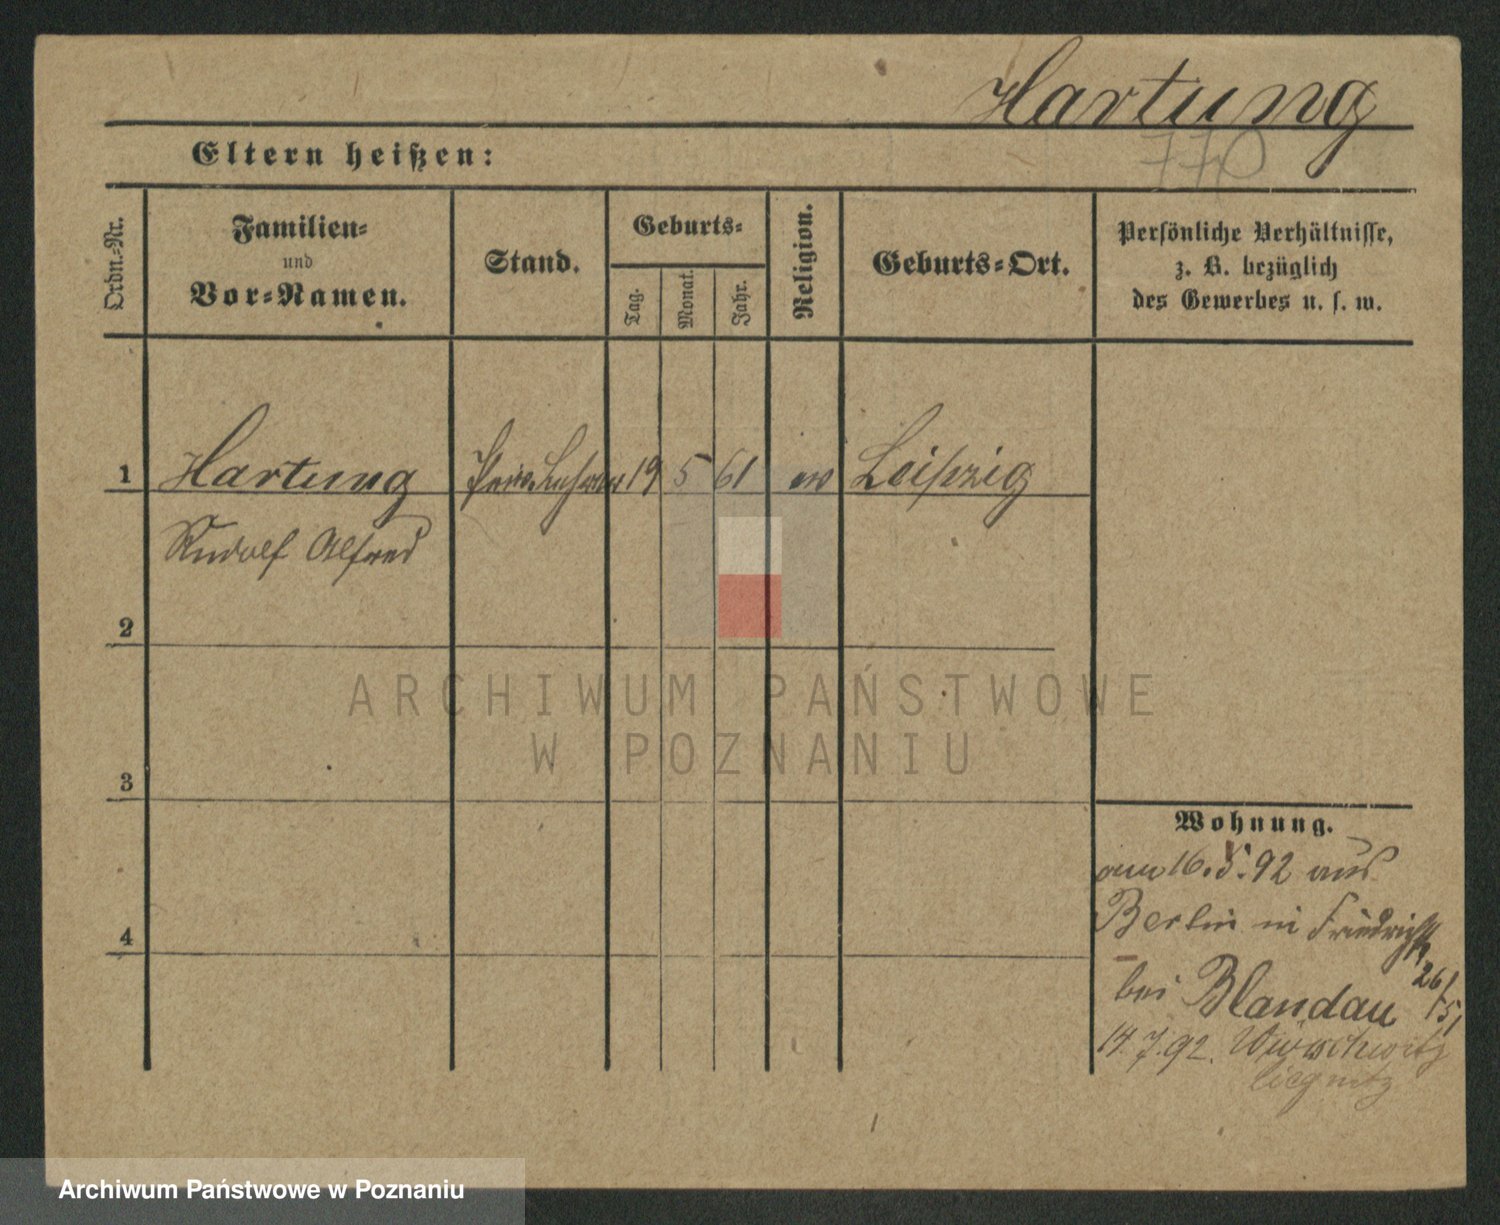 Hartung
770
Eltern heißen:
Ordn.-Nr.
Familien-
und
Vor-Namen.
Stand.
Geburts-
Tag.
Monat.
Jahr.
Religion.
Geburts-Ort.
Persönliche Verhältnisse,
z. B. bezüglich
des Gewerbes u. s. w.
1 Hartung 19 5 61 ev Leipzig
Rudolf Alfred
2
3
4
Wohnung.
am 16.5.92 aus
Berlin in
bei Blandau 26/5
14.7.92.
Liegnitz
ARCHIWUM PAŃSTWOWE
W POZNANIU
Archiwum Państwowe w Poznaniu